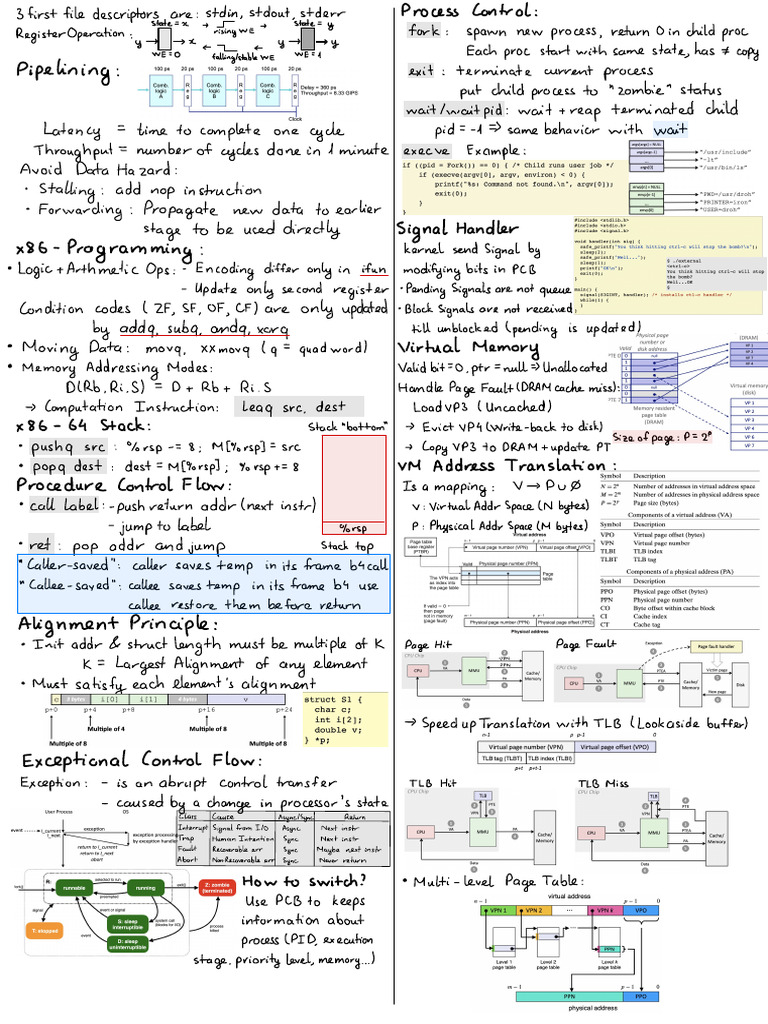 3 first file descriptors are: stdin, stdout, stderr
Register Operation:
state = x
y
x
WE = 0
rising WE
falling/stable WE
state = y
y
y
WE = 1
Pipelining:
100 ps 20 ps 100 ps 20 ps 100 ps 20 ps
Comb. logic A
Reg
Comb. logic B
Reg
Comb. logic C
Reg
Delay = 360 ps
Throughput = 8.33 GIPS
Clock
Latency = time to complete one cycle
Throughput = number of cycles done in 1 minute
Avoid Data Hazard:
· Stalling: add nop instruction
· Forwarding: Propagate new data to earlier
stage to be used directly
x86-Programming:
• Logic + Arthmetic Ops: - Encoding differ only in ifun
- Update only second register
Condition codes (ZF, SF, OF, CF) are only updated
by addq, subq, andq, xorq
• Moving Data: movq, xxmovq (q = quad word)
• Memory Addressing Modes:
D(Rb,Ri.S) = D + Rb + Ri.S
→ Computation Instruction: leaq src, dest
x86-64 Stack:
Stack "bottom"
• pushq src : %rsp -= 8; M[%rsp] = src
• popq dest : dest = M[%rsp]; %rsp += 8
%rsp
Stack top
Procedure Control Flow:
• call Label: - push return addr (next instr)
- jump to label
• ret: pop addr and jump
"Caller-saved": caller saves temp in its frame b4 call
"Callee-saved": callee saves temp in its frame b4 use
callee restore them before return
Alignment Principle:
• Init addr & struct length must be multiple of K
K = Largest Alignment of any element
• Must satisfy each element's alignment
c 3 bytes i[0] i[1] 4 bytes v
p+0 p+4 p+8 p+16 p+24
Multiple of 4
Multiple of 8
Multiple of 8
Multiple of 8
struct S1 {
char c;
int i[2];
double v;
} *p;
Exceptional Control Flow:
Exception: - is an abrupt control transfer
- caused by a change in processor's state
User Process OS
event
I_current
I_next
exception
exception processing
by exception handler
return to I_current
return to I_next
abort
Class Cause Async/Sync Return
Interrupt Signal from I/O Async Next instr
Trap Human Intention Sync Next instr
Fault Recoverable err Sync Maybe next instr
Abort Non Recoverable err Sync Never return
fork()
R:
runnable
selected to run
preempted
running
exit()
Z: zombie (terminated)
signal
T: stopped
signal
event or signal
S: sleep interruptible
event
D: sleep uninterruptible
system call
process killed
How to switch?
Use PCB to keeps
information about
process (PID, execution
stage, priority level, memory...)
Process Control:
fork: spawn new process, return 0 in child proc
Each proc start with same state, has ≠ copy
exit: terminate current process
put child process to "zombie" status
wait/waitpid: wait + reap terminated child
pid = -1 ⇒ same behavior with wait
execve Example:
if ((pid = Fork()) == 0) { /* Child runs user job */
if (execve(argv[0], argv, environ) < 0) {
printf("%s: Command not found.\n", argv[0]);
exit(0);
}
}
"/usr/include"
"-lt"
"/usr/bin/ls"
"PWD=/usr/droh"
"PRINTER=iron"
"USER=droh"
Signal Handler
kernel send Signal by
modifying bits in PCB
• Pending Signals are not queue
• Block Signals are not received
till unblocked (pending is updated)
#include <stdlib.h>
#include <stdio.h>
#include <signal.h>
void handler(int sig) {
safe_printf("You think hitting ctrl-c will stop the bomb?\n");
sleep(2);
safe_printf("Well...");
sleep(1);
printf("OK\n");
exit(0);
}
main() {
signal(SIGINT, handler); /* installs ctl-c handler */
while(1) {
}
}
$ ./external
<ctrl-c>
You think hitting ctrl-c will stop
the bomb?
Well...OK
$
Virtual Memory
Valid bit = 0, ptr = null ⇒ Unallocated
Handle Page Fault (DRAM cache miss):
Load VP3 (Uncached)
→ Evict VP4 (Write-back to disk)
→ Copy VP3 to DRAM + update PT
Physical page number or disk address
Valid
PTE 0
PTE 7
null
null
Memory resident page table (DRAM)
(DRAM)
Virtual memory (disk)
VP 1
VP 2
VP 3
VP 4
VP 6
VP 7
Size of page: P = 2ᵖ
VM Address Translation:
Is a mapping: V → P ∪ ∅
V: Virtual Addr Space (N bytes)
P: Physical Addr Space (M bytes)
Symbol Description
N = 2ⁿ Number of addresses in virtual address space
M = 2ᵐ Number of addresses in physical address space
P = 2ᵖ Page size (bytes)
Components of a virtual address (VA)
Symbol Description
VPO Virtual page offset (bytes)
VPN Virtual page number
TLBI TLB index
TLBT TLB tag
Components of a physical address (PA)
Symbol Description
PPO Physical page offset (bytes)
PPN Physical page number
CO Byte offset within cache block
CI Cache index
CT Cache tag
Virtual address
Page table base register (PTBR)
Virtual page number (VPN) Virtual page offset (VPO)
Valid Physical page number (PPN)
The VPN acts as index into the page table
Page table
If valid = 0 then page not in memory (page fault)
Physical page number (PPN) Physical page offset (PPO)
Physical address
Page Hit
CPU Chip
CPU
VA
MMU
PTEA
PTE
PA
Cache/Memory
Data
Page Fault
CPU Chip
Exception
Page fault handler
CPU
VA
MMU
PTEA
PTE
Cache/Memory
Victim page
New page
Disk
→ Speed up Translation with TLB (Lookaside buffer)
n-1 p p-1 0
Virtual page number (VPN) Virtual page offset (VPO)
TLB tag (TLBT) TLB index (TLBI)
p+t p+t-1
TLB Hit
CPU Chip
TLB
VPN
PTE
CPU
VA
MMU
PA
Cache/Memory
Data
TLB Miss
CPU Chip
TLB
VPN
PTE
CPU
VA
MMU
PTEA
PA
Cache/Memory
Data
• Multi-level Page Table:
virtual address
n-1 p-1 0
VPN 1 VPN 2 ... VPN k VPO
Level 1 page table
Level 2 page table
Level k page table
PPN
m-1 p-1 0
PPN PPO
physical address